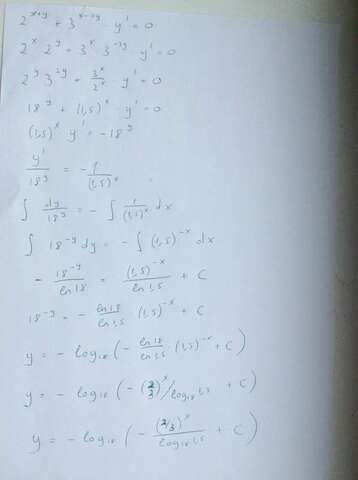 2^{x+y} + 3^{x-2y} · y' = 0
2^x 2^y + 3^x 3^{-2y} · y' = 0
2^y 3^{2y} + \frac{3^x}{2^x} · y' = 0
18^y + (1,5)^x · y' = 0
(1,5)^x y' = -18^y
\frac{y'}{18^y} = -\frac{1}{(1,5)^x}
∫ \frac{dy}{18^y} = -∫ \frac{1}{(1,5)^x} dx
∫ 18^{-y} dy = -∫ (1,5)^{-x} dx
-\frac{18^{-y}}{ln 18} = \frac{(1,5)^{-x}}{ln 1,5} + C
18^{-y} = -\frac{ln 18}{ln 1,5} · (1,5)^{-x} + C
y = -log_{18}(-\frac{ln 18}{ln 1,5} · (1,5)^{-x} + C)
y = -log_{18}(-(\frac{2}{3})^x / log_{18} 1,5 + C)
y = -log_{18}(-\frac{(2/3)^x}{log_{18} 1,5} + C)